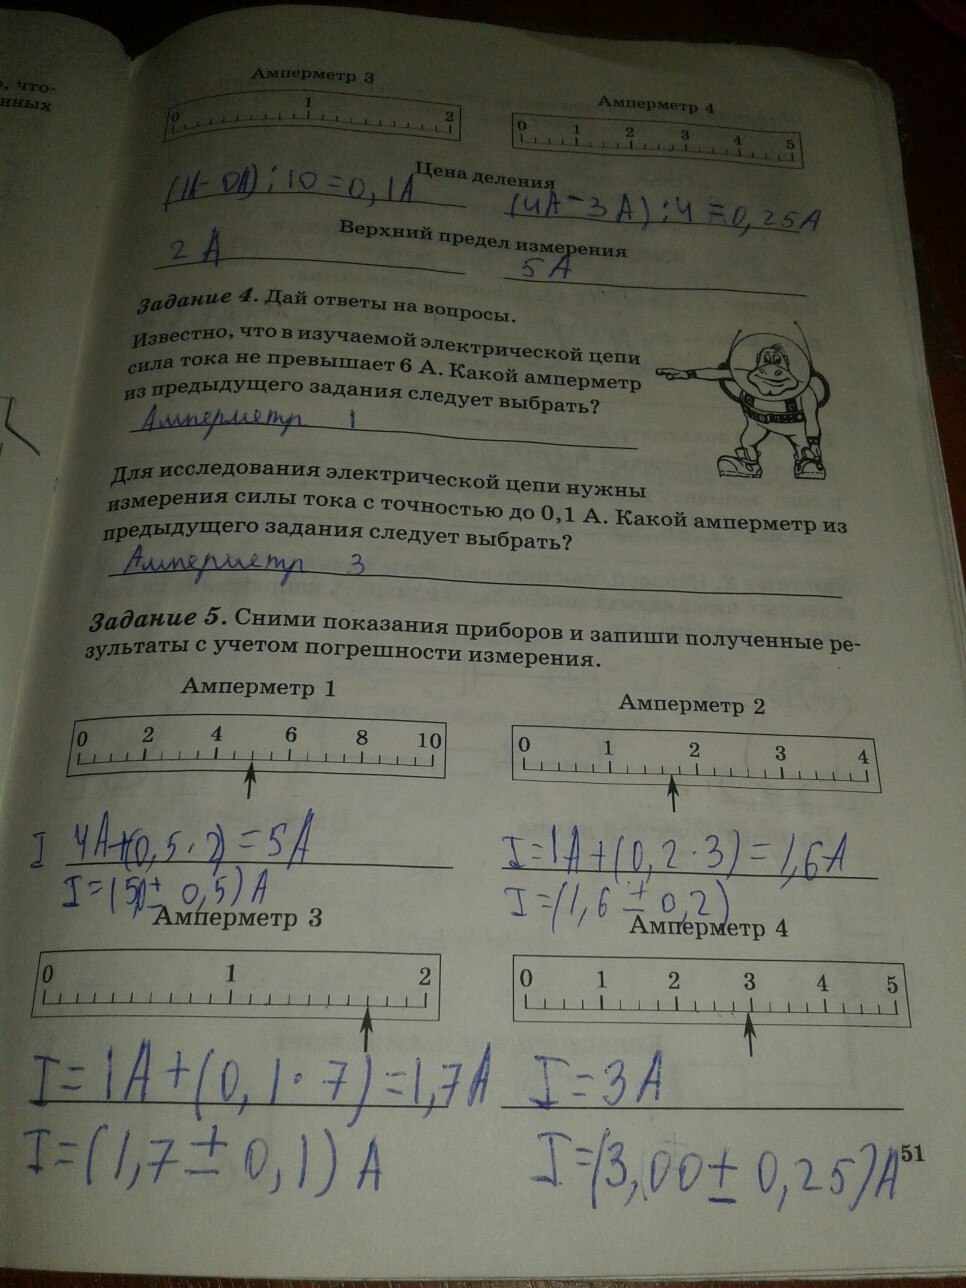 , что-
нных
Амперметр 3
0 1 2
Амперметр 4
0 1 2 3 4 5
Цена деления
(1А-0А):10=0,1А
(4А-3А):4=0,25А
Верхний предел измерения
2 А
5А
Задание 4. Дай ответы на вопросы.
Известно, что в изучаемой электрической цепи
сила тока не превышает 6 А. Какой амперметр
из предыдущего задания следует выбрать?
Амперметр 1
Для исследования электрической цепи нужны
измерения силы тока с точностью до 0,1 А. Какой амперметр из
предыдущего задания следует выбрать?
Амперметр 3
Задание 5. Сними показания приборов и запиши полученные ре-
зультаты с учетом погрешности измерения.
Амперметр 1
0 2 4 6 8 10
Амперметр 2
0 1 2 3 4
I 4А+(0,5·2)=5А
I=(5± 0,5)А
I=1А+(0,2·3)=1,6А
I=(1,6 ± 0,2)
Амперметр 3
0 1 2
Амперметр 4
0 1 2 3 4 5
I=1А+(0,1·7)=1,7А
I=(1,7±0,1)А
I=3А
I=(3,00±0,25)А
51